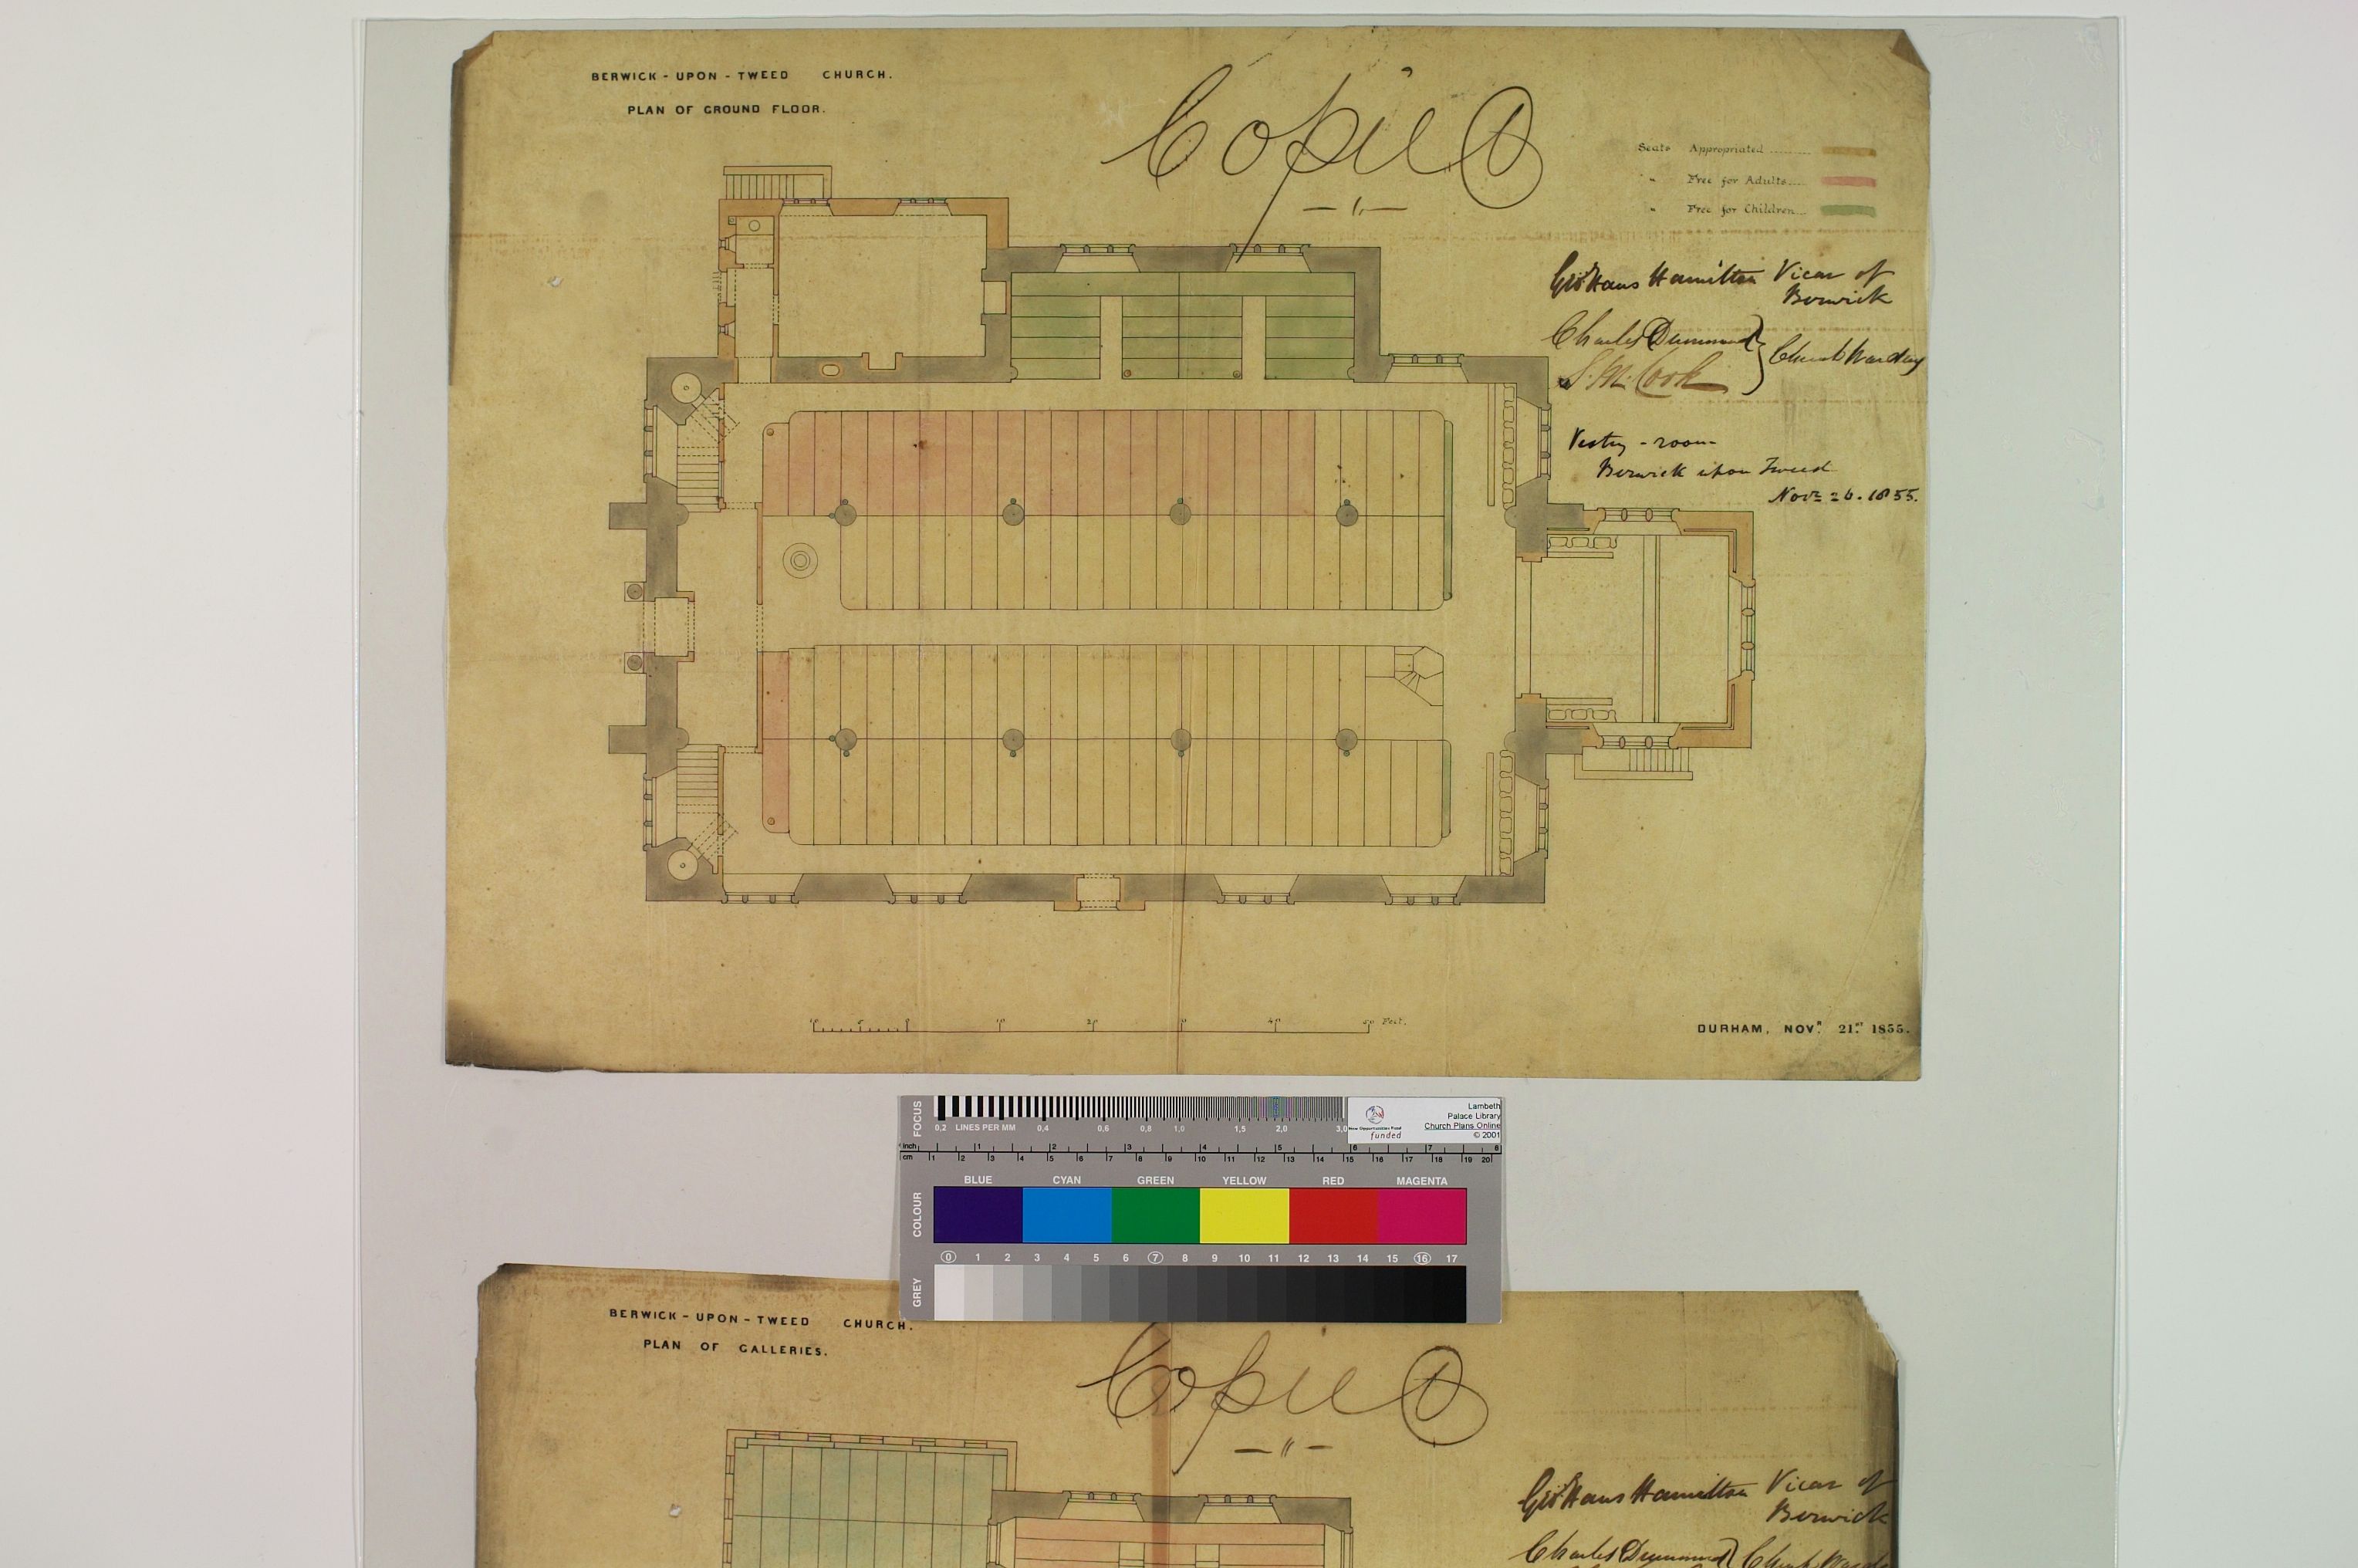 BERWICK - UPON - TWEED CHURCH.
PLAN OF GROUND FLOOR.
Copied
Seats Appropriated
" Free for Adults
" Free for Children
Geo Hans Hamilton Vicar of
Berwick
Charles Drummond
Church Wardens
S. M. Cook
Vestry - room
Berwick upon Tweed
Novr 26. 1855.
10 5 0 10 20 30 40 50 Feet.
DURHAM, NOVR. 21ST 1855.
FOCUS
0,2 LINES PER MM 0,4 0,6 0,8 1,0 1,5 2,0 3,0
Lambeth
Palace Library
Church Plans Online
© 2001
New Opportunities Fund
funded
inch 1 2 3 4 5 6 7 8
cm 1 2 3 4 5 6 7 8 9 10 11 12 13 14 15 16 17 18 19 20
COLOUR
BLUE CYAN GREEN YELLOW RED MAGENTA
0 1 2 3 4 5 6 7 8 9 10 11 12 13 14 15 16 17
GREY
BERWICK - UPON - TWEED CHURCH.
PLAN OF GALLERIES.
Copied
Geo Hans Hamilton Vicar of
Berwick
Charles Drummond Church